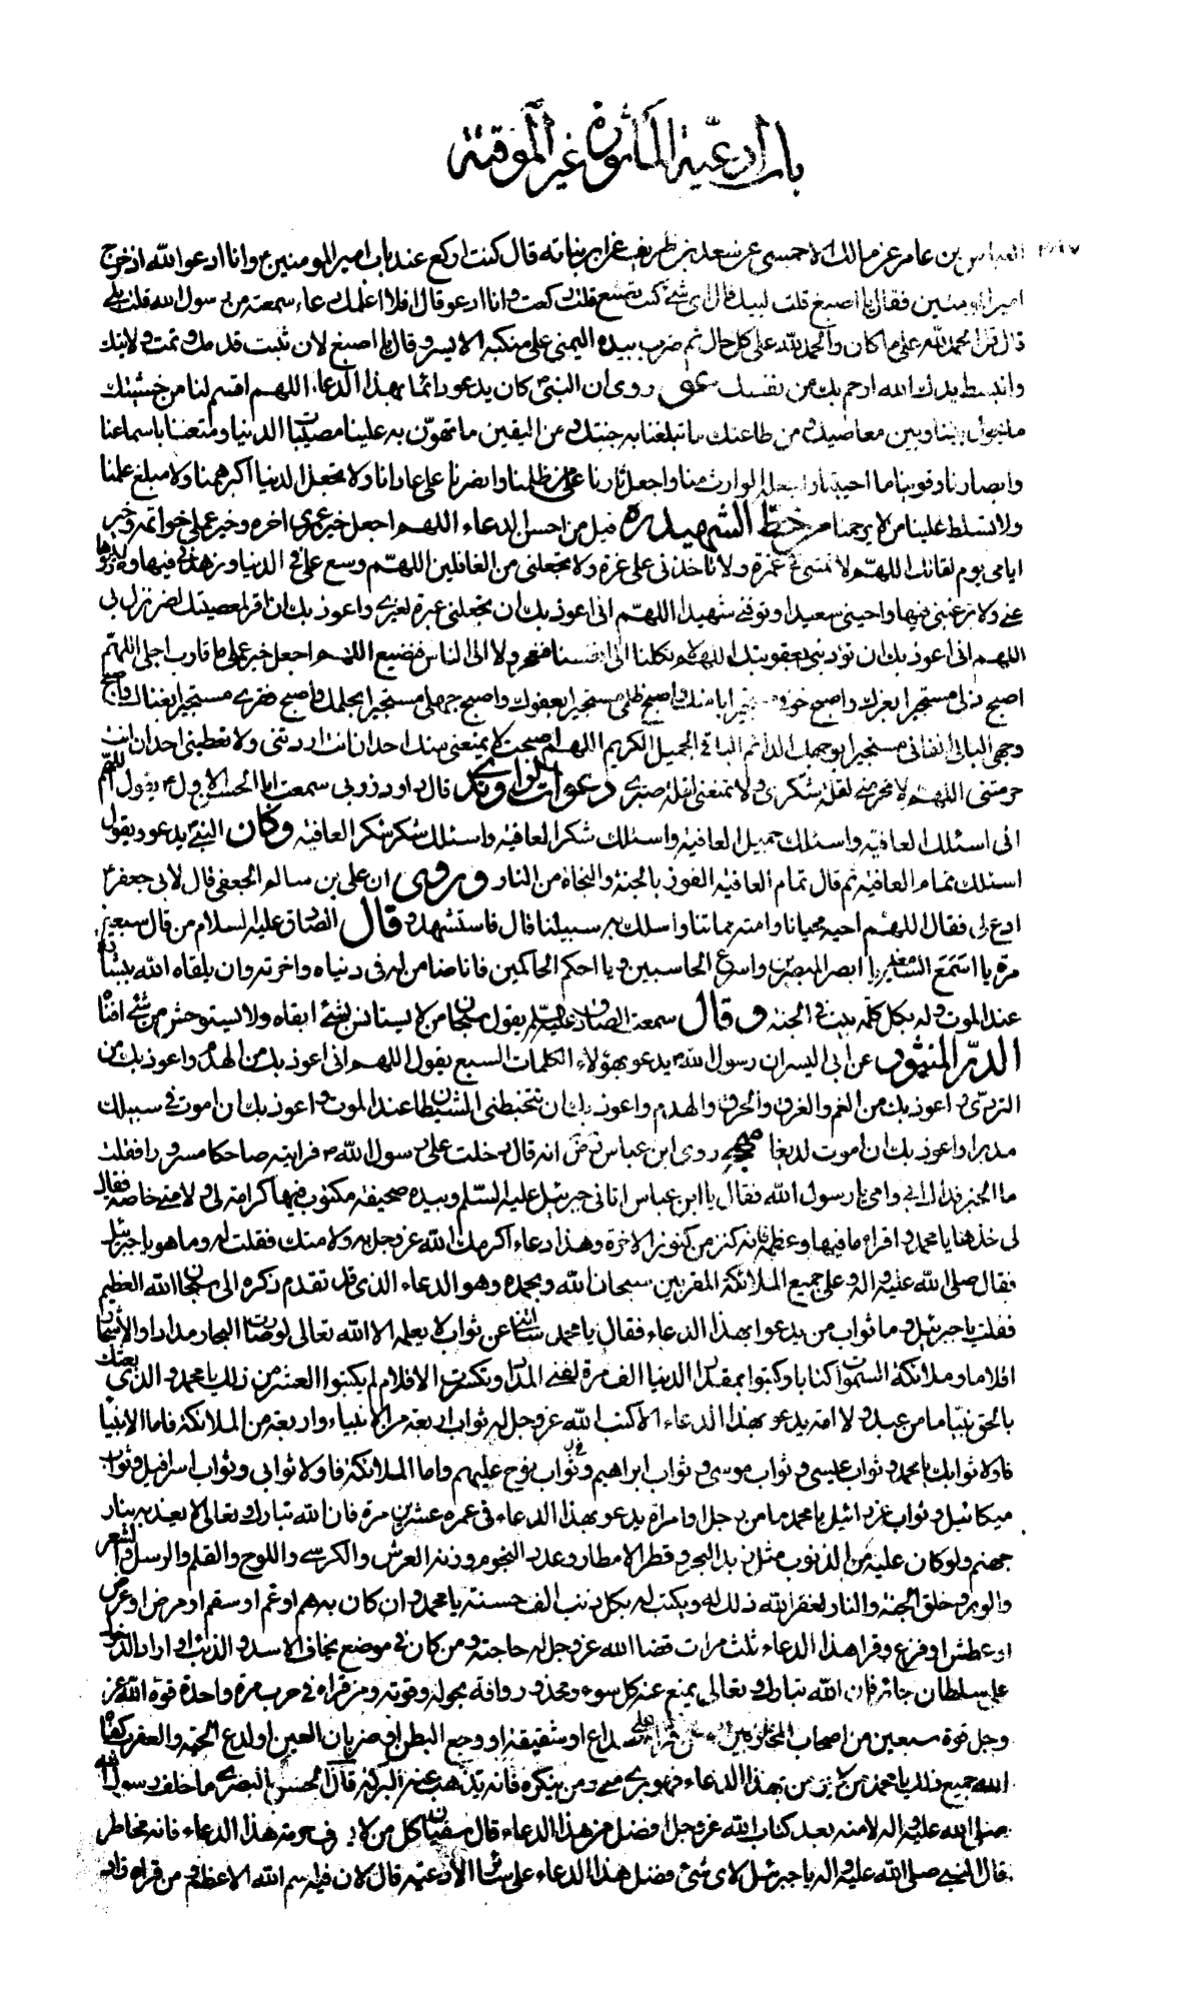 باب الادعية المأثورة غير الموقتة
العباس بن عامر عن مالك الاحمسى عن سعد بن طريف عن ابن نباته قال كنت اركع عند باب امير المومنين ع وانا ادعو الله اذ خرج
امير المومنين فقال يا اصبغ قلت لبيك قال اى شئ كنت تصنع قلت ركعت وانا ادعو قال افلا اعلمك دعاء سمعته من رسول الله قلت بلى
قال قل الحمد لله على ما كان والحمد لله على كل حال ثم ضرب بيده اليمنى على منكبه الايسر وقال يا اصبغ لان ثبتت قدمك وتمت ولايتك
وانبسطت يدك الله ارحم بك من نفسك روى ان النبى ص كان يدعو دائما بهذا الدعاء اللهم اقسم لنا من خشيتك
ما يحول بيننا وبين معاصيك ومن طاعتك ما تبلغنا به جنتك ومن اليقين ما تهون به علينا مصيبات الدنيا ومتعنا باسماعنا
وابصارنا وقوتنا ما احييتنا واجعله الوارث منا واجعل ثارنا على من ظلمنا وانصرنا على من عادانا ولا تجعل الدنيا اكبر همنا ولا مبلغ علمنا
ولا تسلط علينا من لا يرحمنا من خط الشهيد ره قيل من احسن الدعاء اللهم اجعل خير عمرى اخره وخير عملى خواتمه وخير
ايامى يوم لقائك اللهم لا تمتنى فى غمرة ولا تاخذنى على غرة ولا تجعلنى من الغافلين اللهم وسع على فى الدنيا وزهدنى فيها ولا تزوها
عنى ولا ترغبنى فيها واحينى سعيدا وتوفنى شهيدا اللهم انى اعوذ بك ان تجعلنى عبرة لغيرى واعوذ بك ان اقر لمعصيتك لضر نزل بى
اللهم انى اعوذ بك ان تؤدبنى بعقوبتك اللهم لا تكلنا الى انفسنا فنعجز ولا الى الناس فنضيع اللهم اجعل خير عملى ما قارب اجلى اللهم
اصبح ذلى مستجيرا بعزك واصبح خوفى مستجيرا بامنك واصبح ظلمى مستجيرا بعفوك واصبح جهلى مستجيرا بحلمك واصبح فقرى مستجيرا بغناك واصبح
وجهى البالى الفانى مستجيرا بوجهك الدائم الباقى الجميل الكريم اللهم اصبحت لا يمنعنى منك احد ان انت اردتنى ولا يعطينى احد ان انت
حرمتنى اللهم لا تحرمنى لقلة شكرى ولا تمنعنى لقلة صبرى دعوات الراوندى قال داود زربى سمعت ابا الحسن الاول ع يقول اللهم
انى اسئلك العافية واسئلك جميل العافية واسئلك شكر العافية واسئلك شكر شكر العافية وكان النبى ص يدعو ويقول
اسئلك تمام العافية ثم قال تمام العافية الفوز بالجنة والنجاة من النار وروى ان على بن سالم الجعفى قال لابى جعفر ع
ادع لى فقال اللهم احيه محيانا وامته مماتنا واسلك به سبيلنا قال فاستشهد وقال الصادق عليه السلام من قال سبعين
مرة يا اسمع السامعين ويا ابصر المبصرين واسرع الحاسبين ويا احكم الحاكمين فانا ضامن له فى دنياه واخرته وان يلقاه الله ببشارة
عند الموت وله بكل كلمة بيت فى الجنة وقال سمعت الصادق عليه السلم يقول سبحان من لا يستانس بشئ ابقاه ولا يستوحش من شئ افناه
الدر المنثور عن ابى اليسر ان رسول الله ص يدعو بهؤلاء الكلمات السبع يقول اللهم انى اعوذ بك من الهدم واعوذ بك من
التردى واعوذ بك من الغم والغرق والحرق والهدم واعوذ بك ان يتخبطنى الشيطان عند الموت واعوذ بك ان اموت فى سبيلك
مدبرا واعوذ بك ان اموت لديغا مهج روى ابن عباس رض انه قال دخلت على رسول الله ص فرايته ضاحكا مسرورا فقلت
ما الخبر فداك ابى وامى يا رسول الله فقال يا ابن عباس اتانى جبرئيل عليه السلم وبيده صحيفة مكتوب فيها كرامة لى ولامتى خاصة فقال
لى خذها يا محمد واقرا ما فيها وعظمه فانه كنز من كنوز الاخرة وهذا دعاء اكرمك الله عز وجل به ولامتك فقلت له وما هو يا جبرئيل
فقال صلى الله عليه واله وعلى جميع الملائكة المقربين سبحان الله وبحمده وهو الدعاء الذى قد تقدم ذكره الى سبحان الله العظيم
فقلت يا جبرئيل وما ثواب من يدعوا بهذا الدعاء فقال يا محمد سالتنى عن ثواب لا يعلمه الا الله تعالى لو صارت البحار مدادا والاشجار
اقلاما وملائكة السموات كتابا وكتبوا بمقدار الدنيا الف مرة لفنى المداد وتكسرت الاقلام لم يكتبوا العشر من ذلك يا محمد والذى بعثك
بالحق نبيا ما من عبد ولا امة يدعو بهذا الدعاء الا كتب الله عز وجل له ثواب اربعة من الانبياء واربعة من الملائكة فاما الانبياء
فاولا ثوابك يا محمد وثواب عيسى وثواب موسى وثواب ابراهيم وثواب نوح عليهم واما الملائكة فاولا ثوابى وثواب اسرافيل وثواب
ميكائيل وثواب عزرائيل يا محمد ما من رجل او امراة يدعو بهذا الدعاء فى عمره عشرين مرة فان الله تبارك وتعالى لا يعذبه بنار
جهنم ولو كان عليه من الذنوب مثل زبد البحر وقطر الامطار وعدد النجوم وزنة العرش والكرسى واللوح والقلم والرسل والشعر
والوبر وخلق الجنة والنار لغفر الله ذلك له ويكتب له بكل ذنب الف حسنة يا محمد وان كان به هم او غم او سقم او مرض او عرض
او عطش او فزع وقرا هذا الدعاء ثلث مرات قضا الله عز وجل له حاجته ومن كان فى موضع يخاف الاسد والذئب او اراد الدخول
على سلطان جائر فان الله تبارك وتعالى يمنع عنه كل سوء ومحذور وافة بحوله وقوته ومن قراه فى حرب مرة واحدة قوه الله عز
وجل قوة سبعين من اصحاب المحاربين ومن قراه على صداع او شقيقة او وجع البطن او ضربان العين او لدغ الحية والعقرب كفاه
الله جميع ذلك يا محمد من لا يؤمن بهذا الدعاء فهو برئ منى ومن ينكره فانه تذهب عنه البركة قال الحسن البصرى ما خلف رسول الله
صلى الله عليه واله لامته بعد كتاب الله عز وجل افضل من هذا الدعاء قال سفيان كل من لا يعرف حرمة هذا الدعاء فانه مخاطر
قال النبى صلى الله عليه واله يا جبرئيل لاى شئ فضل هذا الدعاء على سائر الادعية قال لان فيه اسم الله الاعظم ومن قراه زاد